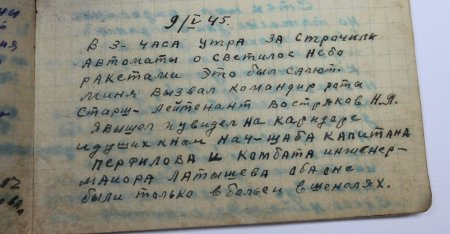 9/V 45.
В 3-часа утра за строчили
автоматы о светилос небо
ракетами это был салют.
Миня вызвал командир рота
старш- лейтенант Востряков Н.Я.
Я вышол и увидел на каридаре
идущих кнам нач-щаба капитана
Перфилова и комбата инженер-
маиора Латышева оба оне
были только в бельеи в шенелях.